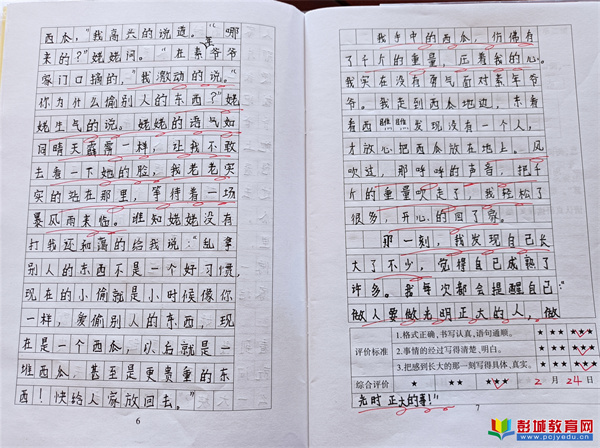 西瓜，"我高兴的说道。"哪
是
来的？"姥姥问。"在秦爷爷
家门口摘的，"我激动的说。"
你为什么偷别人的东西？"姥
姥生气的说。姥姥的语气如
同晴天霹雳一样，让我不敢
去看一下她的脸，我老老实
实的站在那里，等待着一场
暴风雨来临。谁知姥姥没有
打我还和蔼的给我说："乱拿
别人的东西不是一个好习惯，
现在的小偷就是小时候像你
一样，爱偷别人的东西，现
在是一个西瓜，以后就是一
堆西瓜，甚至是更贵重的东
西！快给人家放回去。"
6
我手中的西瓜，仿佛有
了千斤的重量，压着我的心。
我实在没有勇气面对秦爷
爷。我走到西瓜地边，东看
看西瞧瞧发现没有一个人，
才放心把西瓜放在地上。风
吹过，那呼呼的声音，把千
斤的重量吹走了，我轻松了
很多，开心的回了家。
那一刻，我发现自己长
大了不少，觉得自己成熟了
许多。我每次都会提醒自己：
"做人要做光明正大的人，做
评价标准
1.格式正确，书写认真，语句通顺。 ★★★★★
2.事情的经过写得清楚、明白。 ★★★★★
3.把感到长大的那一刻写得具体、真实。 ★★★★★
综合评价 ★ ★★ ★★★ 2月24日
光明正大的事！"
7
彭城教育网
www.pcjyedu.cn